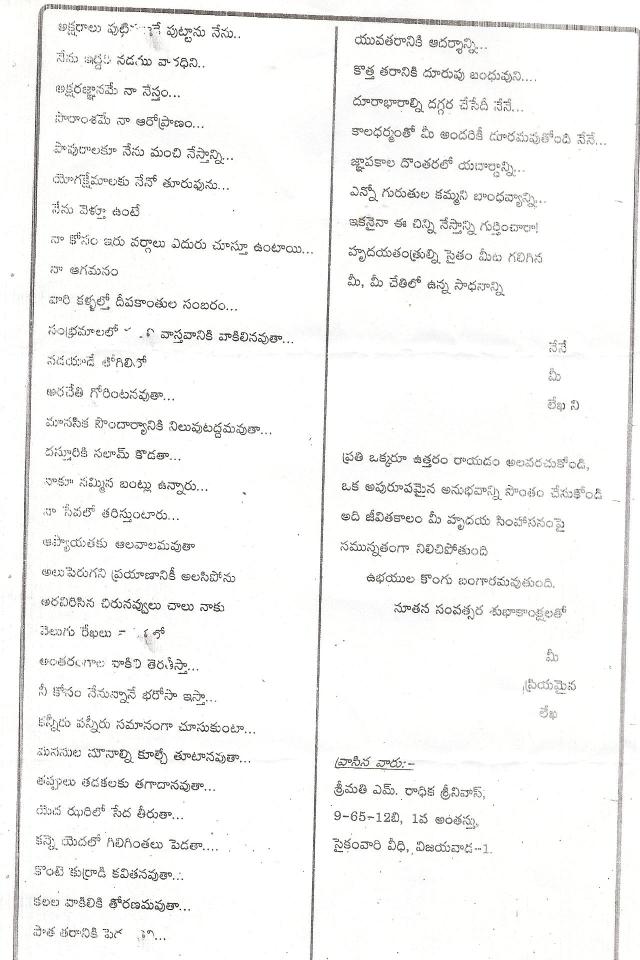 అక్షరాలు పుట్టి పుట్టాను నేను..
నేను ఇద్దరి నడుమ వారధిని..
అక్షరజ్ఞానమే నా నేస్తం...
సారాంశమే నా ఆరోప్రాణం...
పావురాలకూ నేను మంచి నేస్తాన్ని...
యోగక్షేమాలకు నేనో తూరుపును...
నేను వెళ్తూ ఉంటే
నా కోసం ఇరు వర్గాలు ఎదురు చూస్తూ ఉంటాయి...
నా ఆగమనం
వారి కళ్ళల్లో దీపకాంతుల సంబరం...
సంభ్రమాలలో వాస్తవానికి వాకిలినవుతా...
నడయాడే లోగిలిలో
అరచేతి గోరింటనవుతా...
మానసిక సౌందార్యానికి నిలువుటద్దమవుతా...
దస్తూరికి సలామ్ కొడతా...
నాకూ నమ్మిన బంట్లు ఉన్నారు...
నా సేవలో తరిస్తుంటారు...
ఆప్యాయతకు ఆలవాలమవుతా
అలుపెరుగని ప్రయాణానికీ అలసిపోను
అరవిరిసిన చిరునవ్వులు చాలు నాకు
వెలుగు రేఖలు
అంతరంగాల వాకిలి తెరతీస్తా...
నీ కోసం నేనున్నానే భరోసా ఇస్తా...
కన్నీరు పన్నీరు సమానంగా చూసుకుంటా...
మనసుల మౌనాల్ని కూల్చే తూటానవుతా...
తప్పులు తడకలకు తగాదానవుతా...
యెద ఝరిలో సేద తీరుతా...
కన్నె యెదలో గిలిగింతలు పెడతా....
కొంటె కుర్రాడి కవితనవుతా...
కలల వాకిలికి తోరణమవుతా...
పాత తరానికి
యువతరానికి ఆదర్శాన్ని...
కొత్త తరానికి దూరుపు బంధువుని....
దూరాభారాల్ని దగ్గర చేసేదీ నేనే...
కాలధర్మంతో మీ అందరికీ దూరమవుతోంది నేనే...
జ్ఞాపకాల దొంతరలో యదార్ధాన్ని...
ఎన్నో గురుతుల కమ్మని బాంధవ్యాన్ని...
ఇకనైనా ఈ చిన్ని నేస్తాన్ని గుర్తించారా!
హృదయతంత్రుల్ని సైతం మీట గలిగిన
మీ, మీ చేతిలో ఉన్న సాధనాన్ని
నేనే
మీ
లేఖ ని
ప్రతి ఒక్కరూ ఉత్తరం రాయడం అలవరచుకోండి,
ఒక అపురూపమైన అనుభవాన్ని సొంతం చేసుకోండి
అది జీవితకాలం మీ హృదయ సింహాసనంపై
సమున్నతంగా నిలిచిపోతుంది
ఉభయుల కొంగు బంగారమవుతుంది.
నూతన సంవత్సర శుభాకాంక్షలతో
మీ
ప్రియమైన
లేఖ
వ్రాసిన వారు:-
శ్రీమతి ఎమ్. రాధిక శ్రీనివాస్,
9-65-12బి, 1వ అంతస్తు,
సైకంవారి వీధి, విజయవాడ-1.